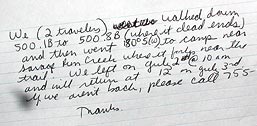 We (2 travelers) walked down
500.1B to 500.8B (where it dead ends)
and then went 180°S(W) to camp near
Savage Run Creek where it forks near the
trail. We left on July 2nd @ 10 am
and will return at 12 on July 3rd.
If we aren't back, please call 755-
Thanks.